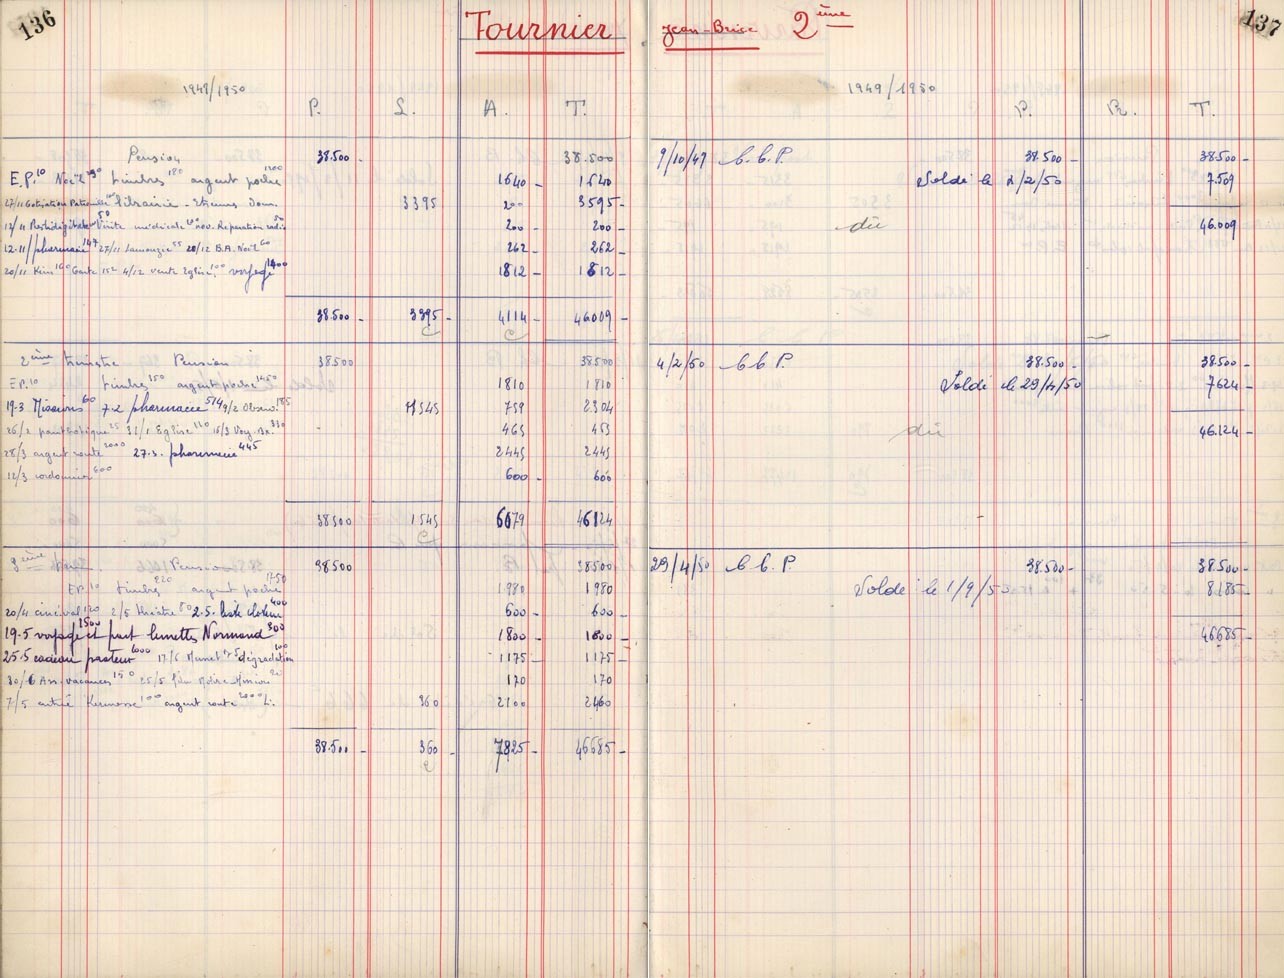 136
Fournier Jean-Brice 2ème
137
1948/1950
P. L. A. T.
Pension 38.500 - 38.500
E.P.10 Noël timbres argent poche 1640 - 1640
librairie - Etienne 3395 200 - 3595 -
12/11 visite médicale 200 - 200 -
12.11 pharmacie 147 27/11 28/12 B.A. Noël 60 262 - 262 -
20/11 4/12 vente Eglise 100 voyage 1812 - 1812 -
38.500 - 3395 - 4114 - 46009 -
2ème trimestre Pension 38500 38500
E.P.10 timbres 350 argent poche 1450 1810 1810
19-3 Missions 60 7-2 pharmacie 514 9/2 185 1545 759 2304
26/2 31/1 Eglise 16/3 Voy. 463 463
28/3 argent route 2000 27.3. pharmacie 445 2445 2445
12/3 cordonnier 600 600 - 600
38500 1545 6079 46124
3ème Pension 38500 38500
E.P.10 timbres 220 argent poche 1750 1980 1980
20/4 cinéval 120 2/5 théâtre 80 2.5. 400 600 - 600 -
19-5 voyage 1500 et part lunettes Normand 300 1800 - 1800 -
25.5 cadeau pasteur 1000 17/6 dégradation 100 1175 - 1175 -
30/6 vacances 150 25/5 170 170
7/5 entrée Kermesse 100 argent route 2000 360 2100 2460
38.500 - 360 - 7825 - 46685 -
1949/1950
P. R. T.
9/10/49 C.C.P. 38.500 - 38.500 -
Soldé le 2/2/50 7.509
dû 46.009
4/2/50 C.C.P. 38.500 - 38.500 -
Soldé le 29/4/50 7624 -
dû 46.124 -
29/4/50 C.C.P. 38.500 - 38.500 -
Soldé le 1/9/50 8.185 -
46685 -